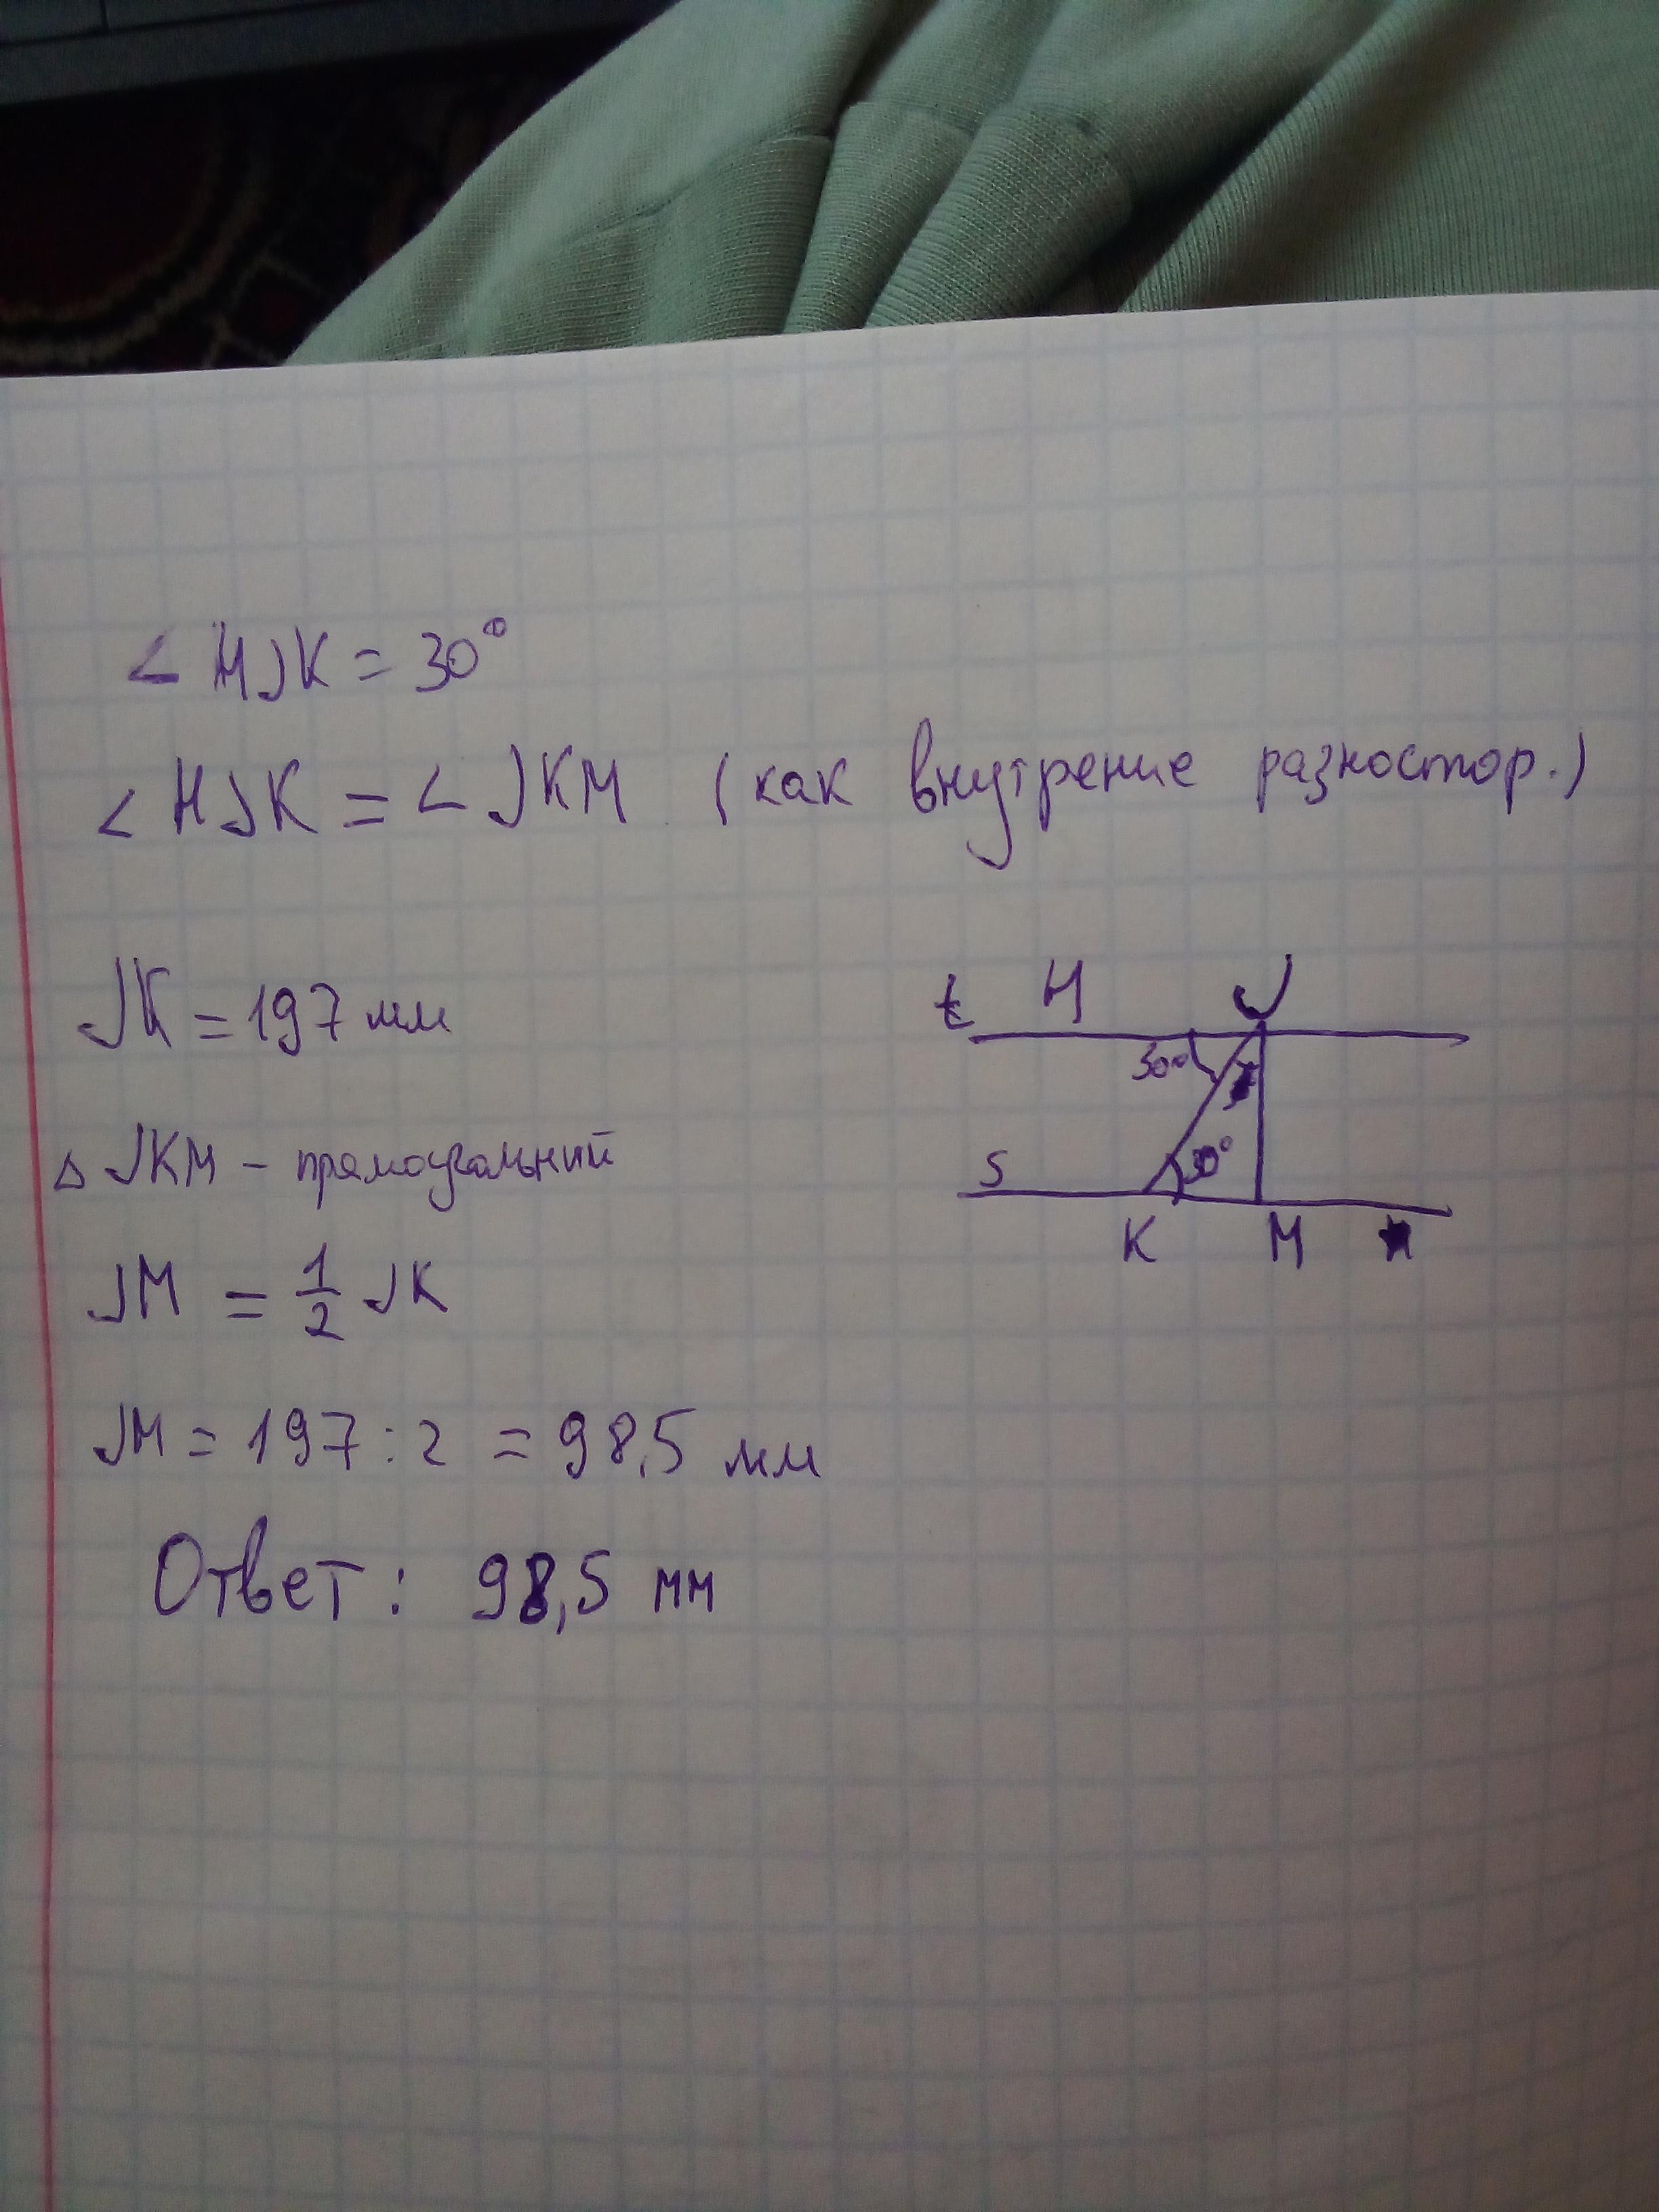 < HJK = 30°
< HJK = < JKM (как внутрение разностор.)
JK = 197 мм
t H J
30°
S 30°
K M
△ JKM - прямоугольний
JM = 1/2 JK
JM = 197 : 2 = 98,5 мм
Ответ : 98,5 мм